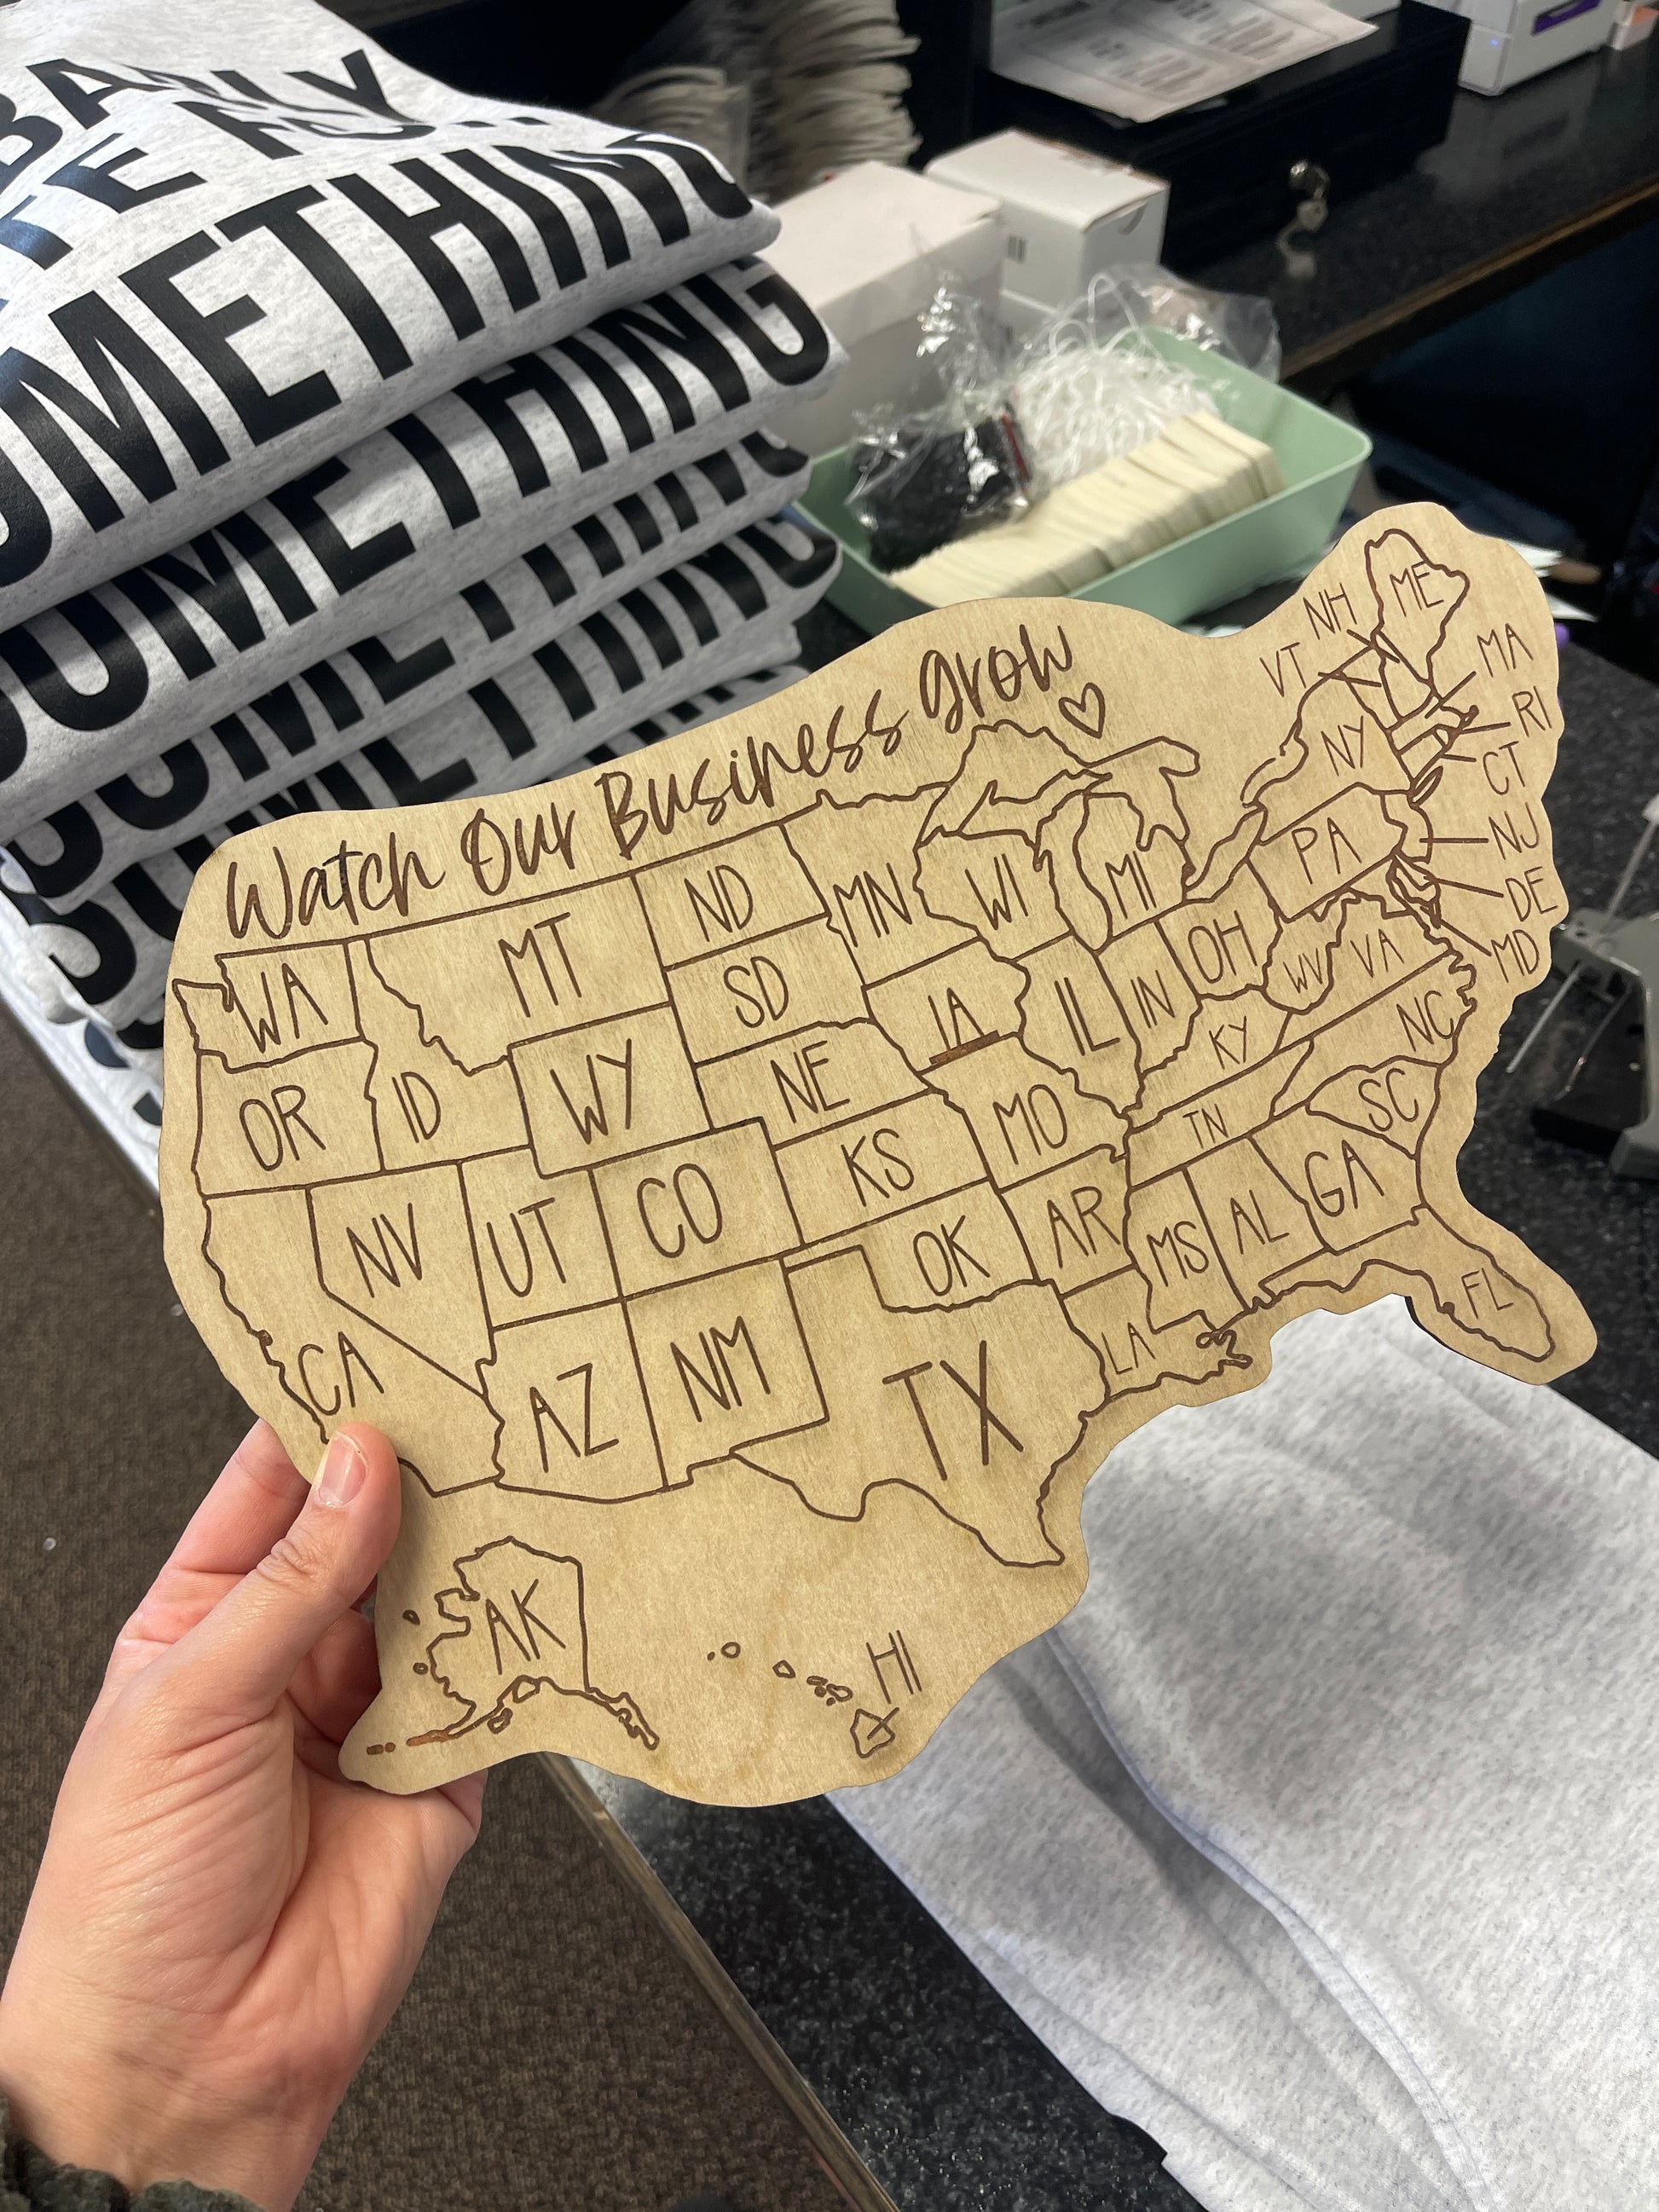 SOMETHING
SOMETHING
SOMETHING
SOMETHING
Watch Our Business Grow
ME
NH
VT
MA
RI
NY
CT
NJ
PA
DE
MD
WA
MT
ND
MN
WI
MI
OR
ID
WY
SD
IA
IL
IN
OH
WV
VA
NE
KY
NC
NV
UT
CO
KS
MO
TN
SC
CA
AZ
NM
OK
AR
MS
AL
GA
TX
LA
FL
AK
HI